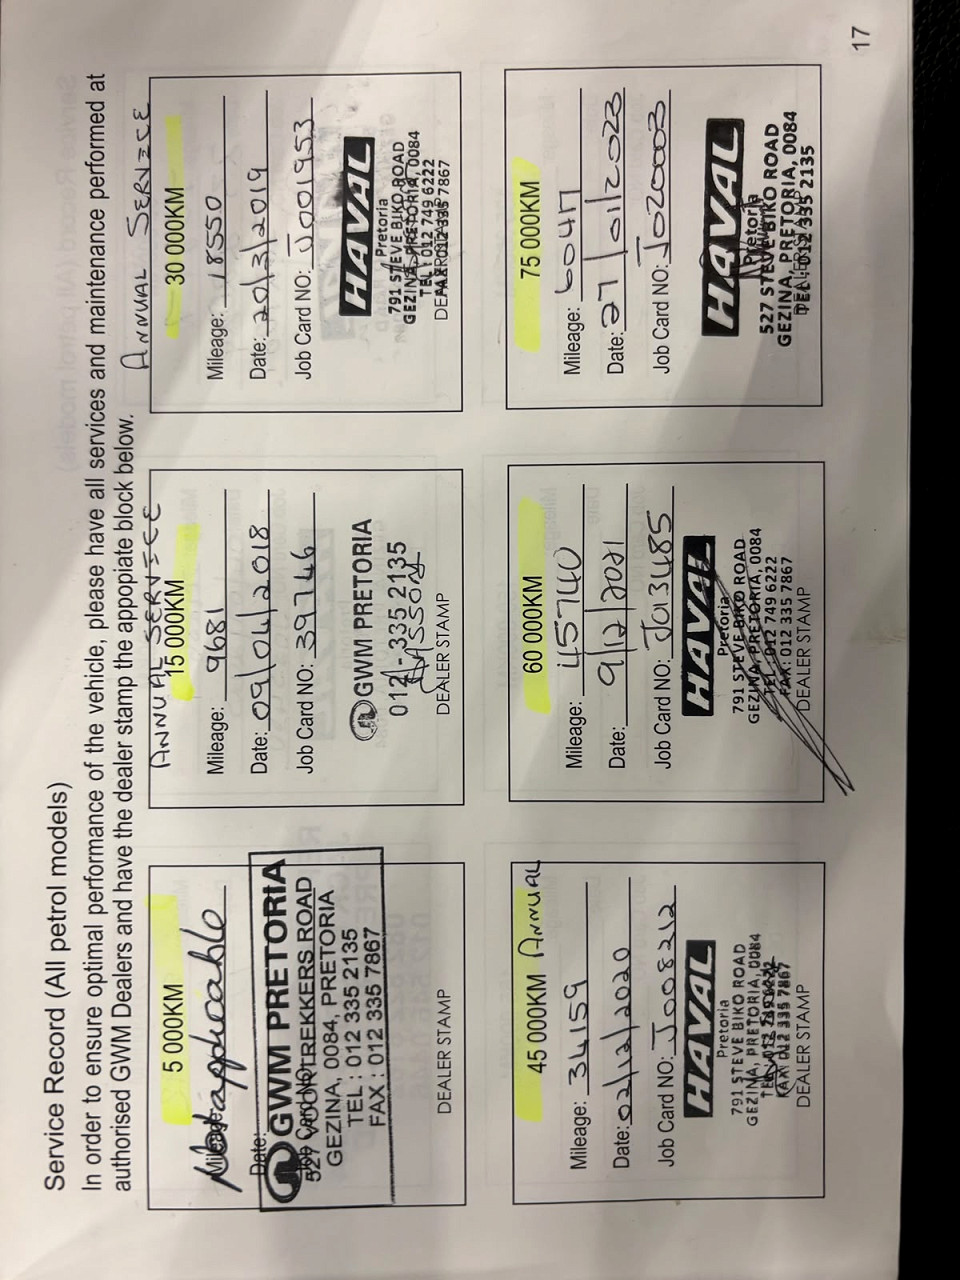 Service Record (All petrol models)
In order to ensure optimal performance of the vehicle, please have all services and maintenance performed at
authorised GWM Dealers and have the dealer stamp the appopiate block below.
5 000KM
Mileage:
Not applicable
Date:
Job Card NO:
GWM PRETORIA
527 VOORTREKKERS ROAD
GEZINA, 0084, PRETORIA
TEL : 012 335 2135
FAX : 012 335 7867
DEALER STAMP
ANNUAL SERVICE
15 000KM
Mileage: 9681
Date: 09/04/2018
Job Card NO: 39746
GWM PRETORIA
012 - 335 2135
DEALER STAMP
ANNUAL SERVICE
30 000KM
Mileage: 18550
Date: 20/3/2019
Job Card NO: J001953
HAVAL
Pretoria
791 STEVE BIKO ROAD
GEZINA, PRETORIA, 0084
TEL : 012 749 6222
FAX: 012 335 7867
DEALER STAMP
45 000KM ANNUAL
Mileage: 34159
Date: 02/12/2020
Job Card NO: J008212
HAVAL
Pretoria
791 STEVE BIKO ROAD
GEZINA, PRETORIA, 0084
TEL : 012 749 6222
FAX: 012 335 7867
DEALER STAMP
60 000KM
Mileage: 45740
Date: 9/12/2021
Job Card NO: J013485
HAVAL
Pretoria
791 STEVE BIKO ROAD
GEZINA, PRETORIA, 0084
TEL : 012 749 6222
FAX: 012 335 7867
DEALER STAMP
75 000KM
Mileage: 60417
Date: 27/01/2023
Job Card NO: J020003
HAVAL
Pretoria
527 STEVE BIKO ROAD
GEZINA, PRETORIA, 0084
TEL : 012 335 2135
DEALER STAMP
17